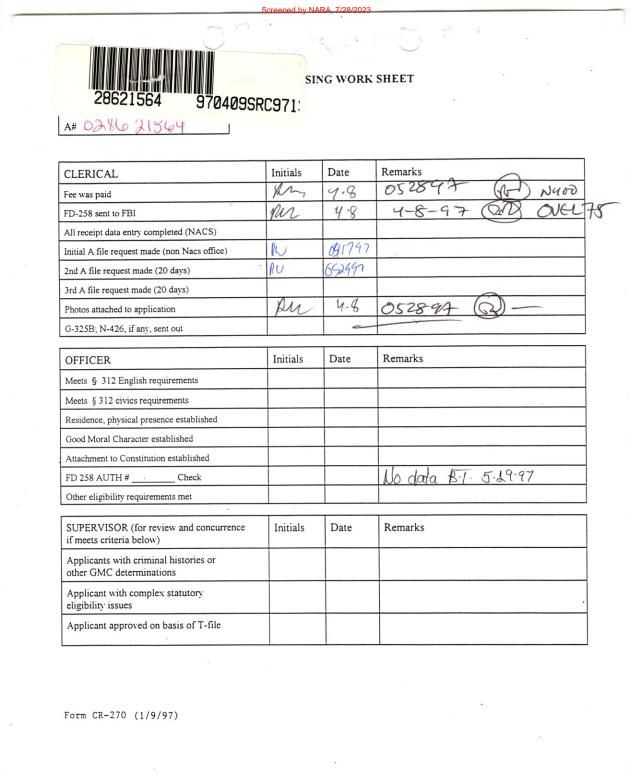 Screened by NARA, 7/28/2023
SING WORK SHEET
28621564 970409SRC971
A# 028621564
CLERICAL Initials Date Remarks
Fee was paid 4.8 052897 N400
FD-258 sent to FBI 4.8 4-8-97 OVER 75
All receipt data entry completed (NACS)
Initial A file request made (non Nacs office) RU 041797
2nd A file request made (20 days) RU 052997
3rd A file request made (20 days)
Photos attached to application 4.8 052897
G-325B; N-426, if any, sent out
OFFICER Initials Date Remarks
Meets § 312 English requirements
Meets § 312 civics requirements
Residence, physical presence established
Good Moral Character established
Attachment to Constitution established
FD 258 AUTH # ________ Check No data B.I. 5-29-97
Other eligibility requirements met
SUPERVISOR (for review and concurrence Initials Date Remarks
if meets criteria below)
Applicants with criminal histories or
other GMC determinations
Applicant with complex statutory
eligibility issues
Applicant approved on basis of T-file
Form CR-270 (1/9/97)